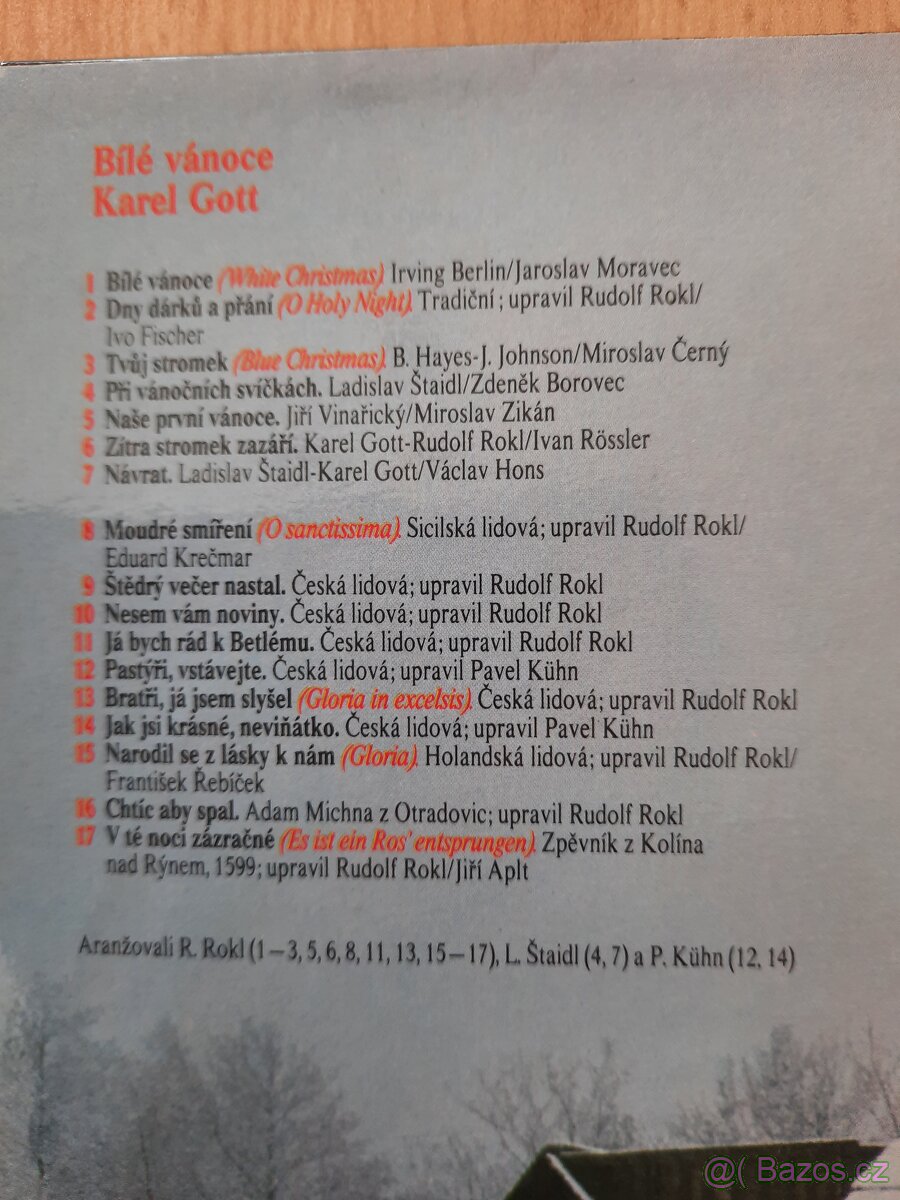 Bílé vánoce
Karel Gott
1 Bílé vánoce (White Christmas). Irving Berlin/Jaroslav Moravec
2 Dny dárků a přání (O Holy Night). Tradiční; upravil Rudolf Rokl/
Ivo Fischer
3 Tvůj stromek (Blue Christmas). B. Hayes-J. Johnson/Miroslav Černý
4 Při vánočních svíčkách. Ladislav Štaidl/Zdeněk Borovec
5 Naše první vánoce. Jiří Vinařický/Miroslav Zikán
6 Zítra stromek zazáří. Karel Gott-Rudolf Rokl/Ivan Rössler
7 Návrat. Ladislav Štaidl-Karel Gott/Václav Hons
8 Moudré smíření (O sanctissima). Sicilská lidová; upravil Rudolf Rokl/
Eduard Krečmar
9 Štědrý večer nastal. Česká lidová; upravil Rudolf Rokl
10 Nesem vám noviny. Česká lidová; upravil Rudolf Rokl
11 Já bych rád k Betlému. Česká lidová; upravil Rudolf Rokl
12 Pastýři, vstávejte. Česká lidová; upravil Pavel Kühn
13 Bratři, já jsem slyšel (Gloria in excelsis). Česká lidová; upravil Rudolf Rokl
14 Jak jsi krásné, neviňátko. Česká lidová; upravil Pavel Kühn
15 Narodil se z lásky k nám (Gloria). Holandská lidová; upravil Rudolf Rokl/
František Řebíček
16 Chtíc aby spal. Adam Michna z Otradovic; upravil Rudolf Rokl
17 V té noci zázračné (Es ist ein Ros' entsprungen). Zpěvník z Kolína
nad Rýnem, 1599; upravil Rudolf Rokl/Jiří Aplt
Aranžovali R. Rokl (1–3, 5, 6, 8, 11, 13, 15–17), L. Štaidl (4, 7) a P. Kühn (12, 14)
@( Bazos.cz